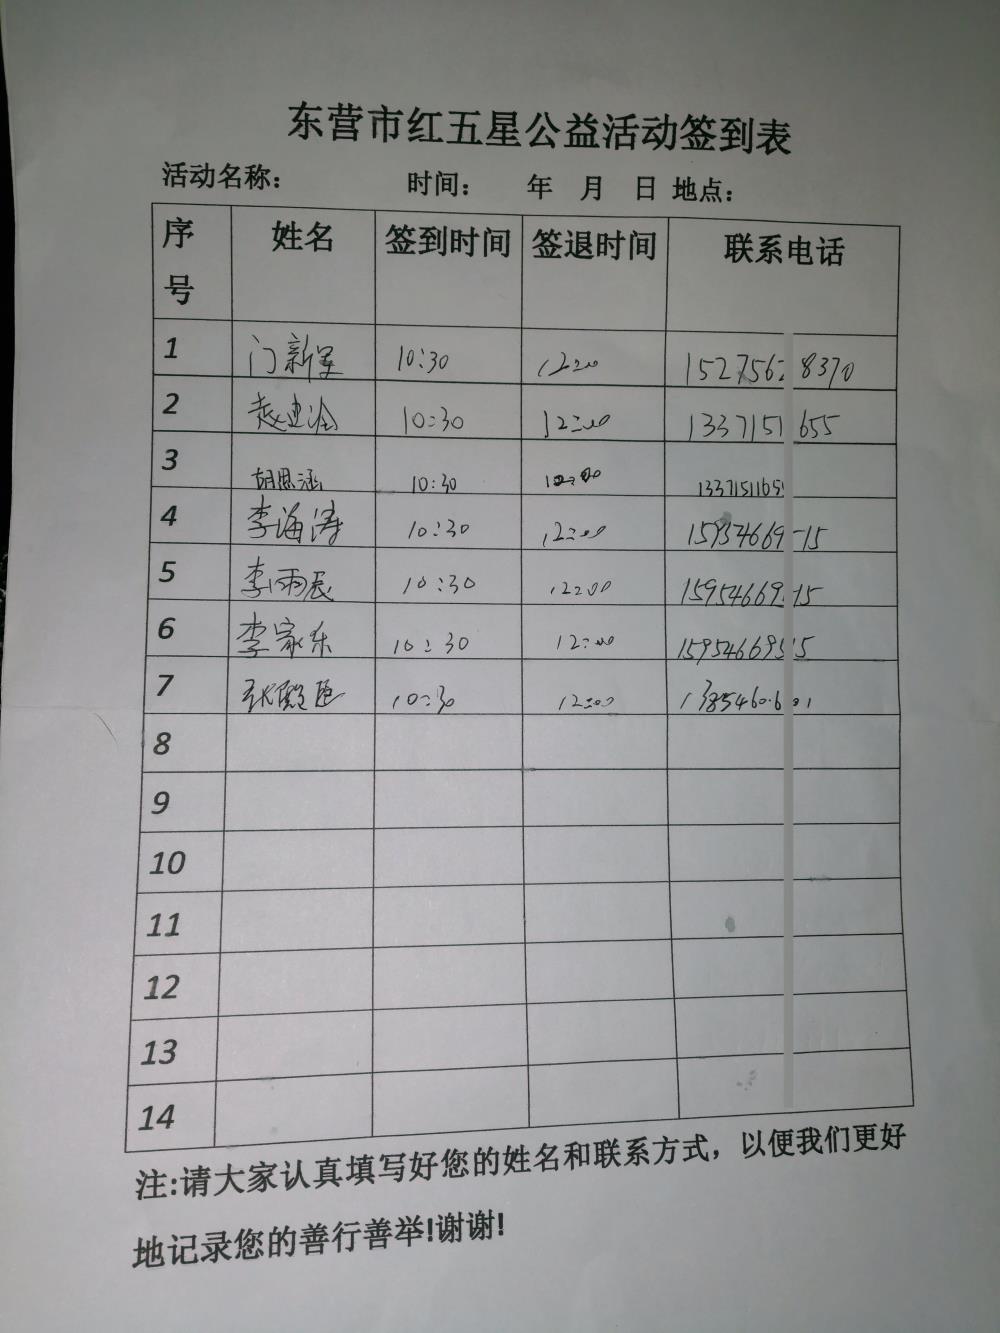 东营市红五星公益活动签到表
活动名称: 时间: 年 月 日 地点:
序号 姓名 签到时间 签退时间 联系电话
1 门新军 10:30 12:00 1527562 8370
2 赵建 10:30 12:00 1337151 655
3 胡思涵 10:30 12:00 133715116
4 李海涛 10:30 12:00 15954669 15
5 李雨辰 10:30 12:00 15954669 15
6 李家乐 10:30 12:00 159546695 5
7 10:30 12:00 13854606
8
9
10
11
12
13
14
注:请大家认真填写好您的姓名和联系方式，以便我们更好
地记录您的善行善举!谢谢!